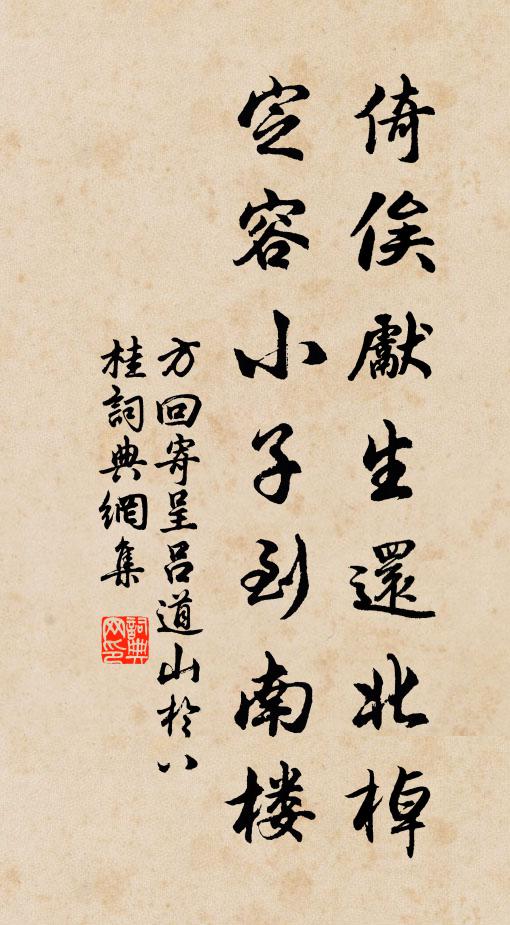 倚俟獻生還北棹
定容小子到南楼
方回寄呈吕道山於八
桂詞典網集
詞典網印